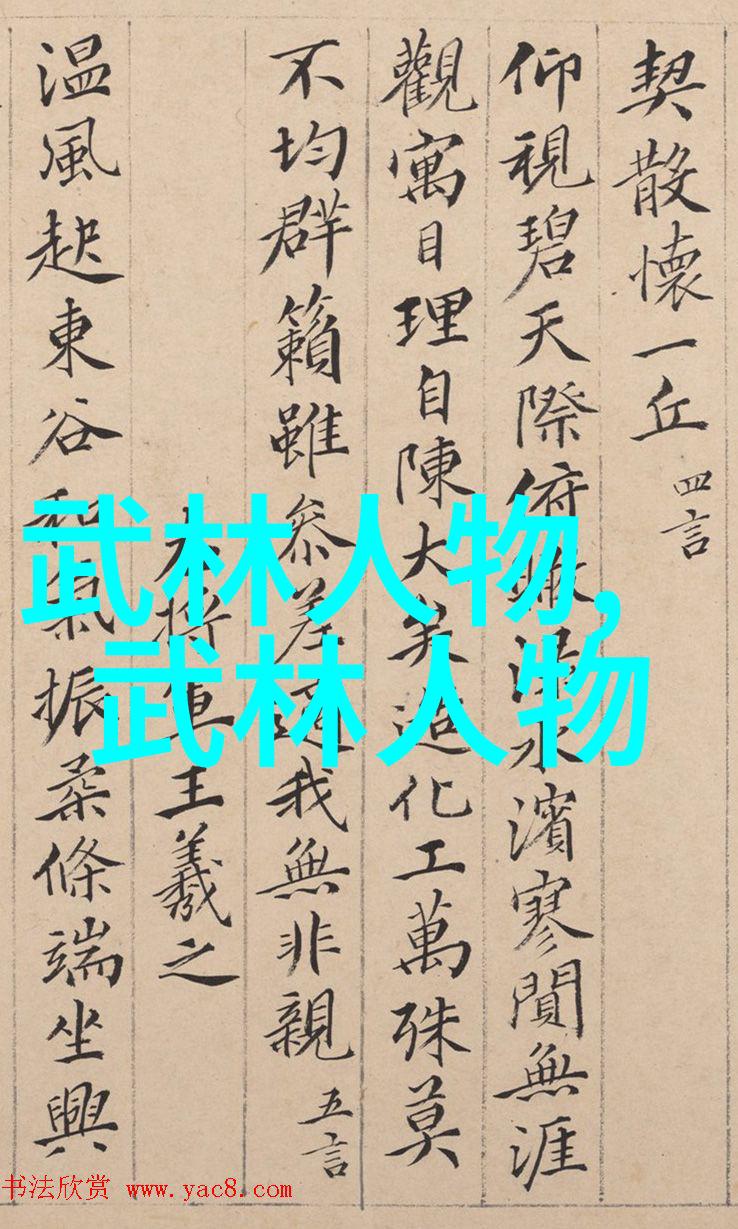 契散懷一丘 四言
仰視碧天際俯瞰淥水濱寥閴無涯
觀寓目理自陳大矣造化工萬殊莫
不均群籟雖参差適我無非親 五言
右將軍王羲之
温風起東谷和氣振柔條端坐興
武林人物,
武林人物
书法欣赏 www.yac8.com